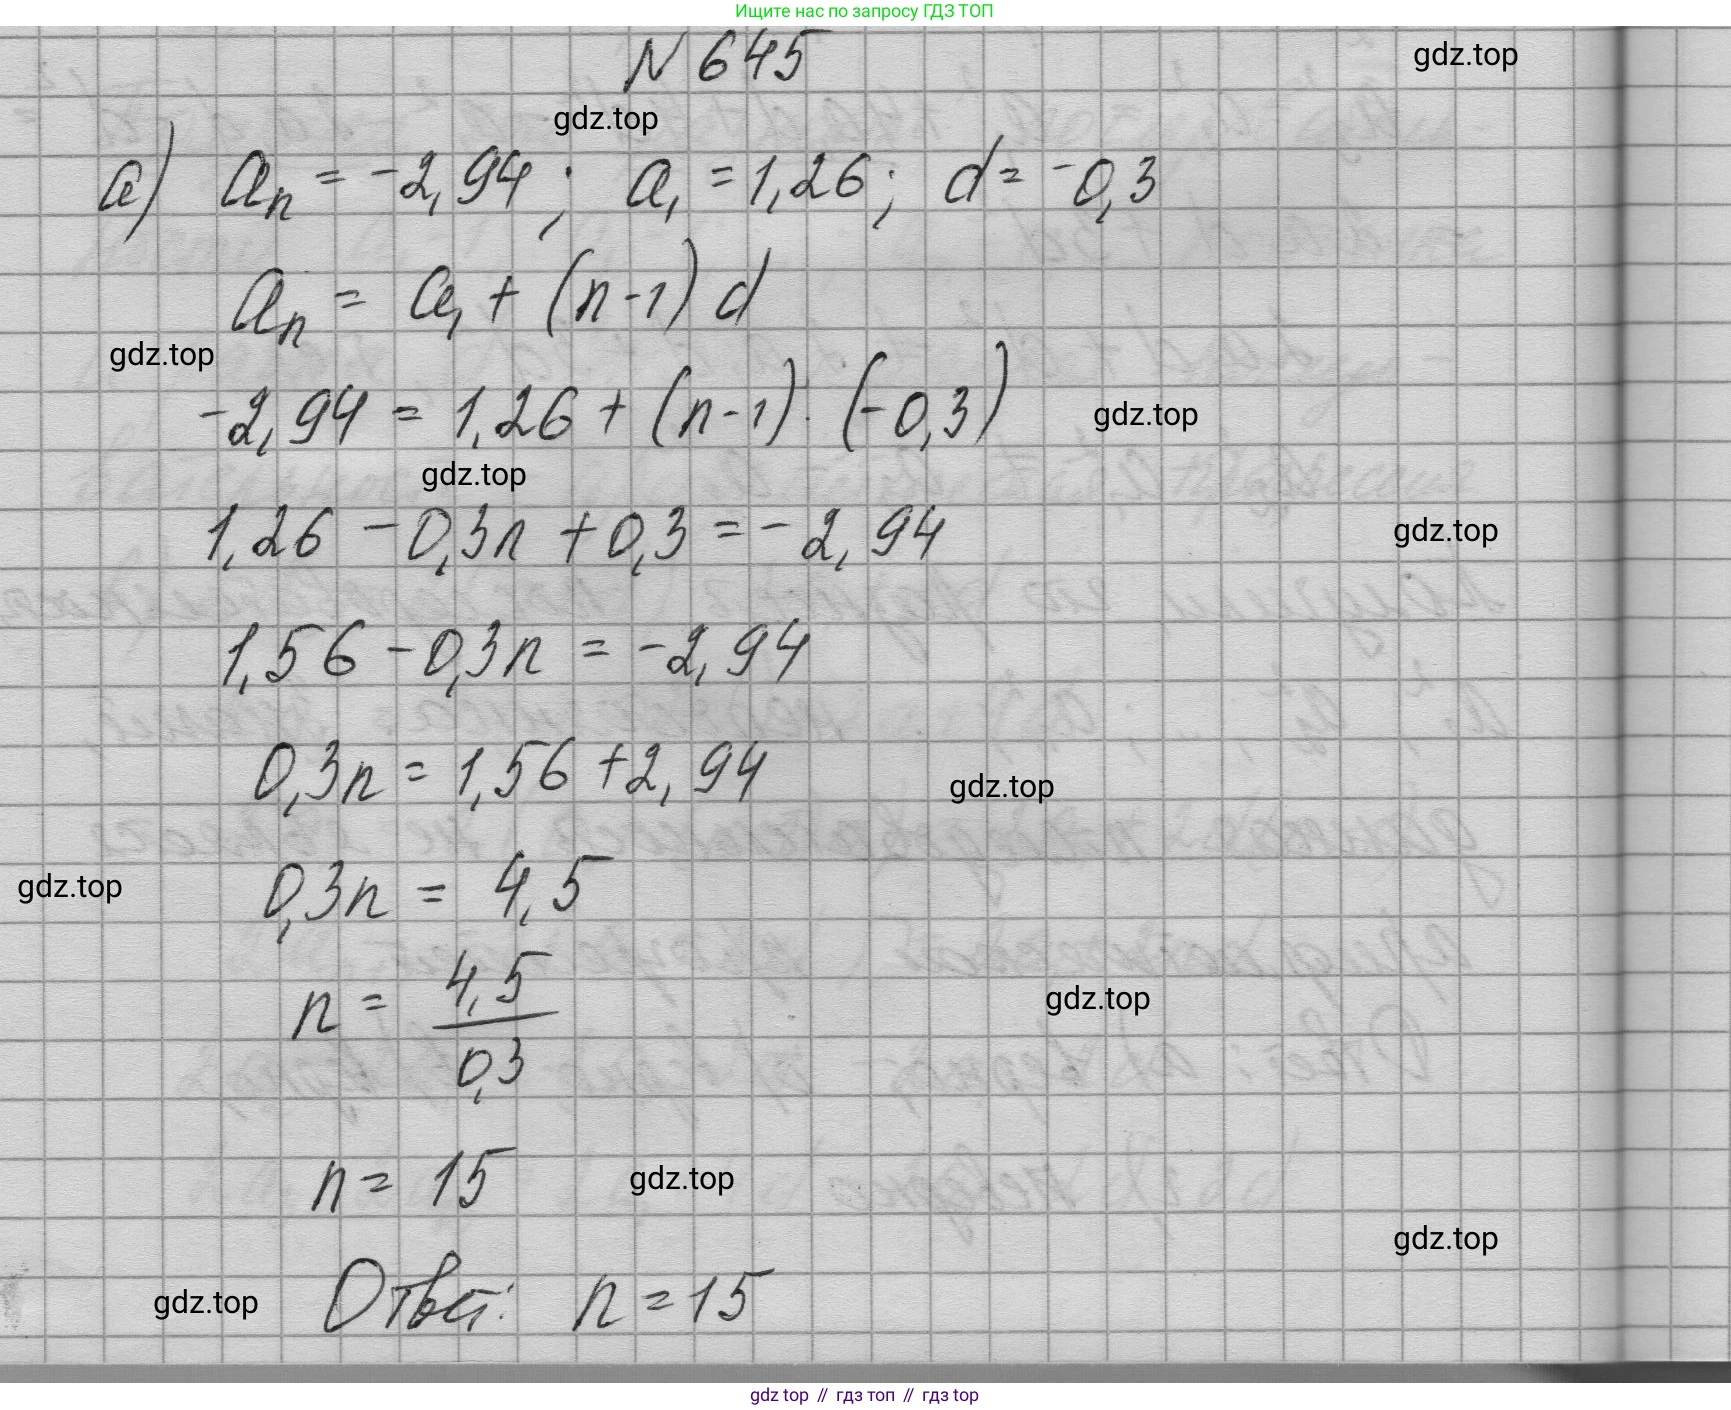 Ищите нас по запросу ГДЗ ТОП
N 645
gdz.top
gdz.top
а) aₙ = -2,94; a₁ = 1,26; d = -0,3
aₙ = a₁ + (n-1) d
gdz.top
-2,94 = 1,26 + (n-1) · (-0,3)
gdz.top
gdz.top
1,26 - 0,3n + 0,3 = - 2,94
gdz.top
1,56 - 0,3n = -2,94
0,3n = 1,56 + 2,94
gdz.top
0,3n = 4,5
gdz.top
n = 4,5 / 0,3
gdz.top
n = 15
gdz.top
gdz.top
Ответ: n = 15
gdz.top
gdz top // гдз топ // гдз top